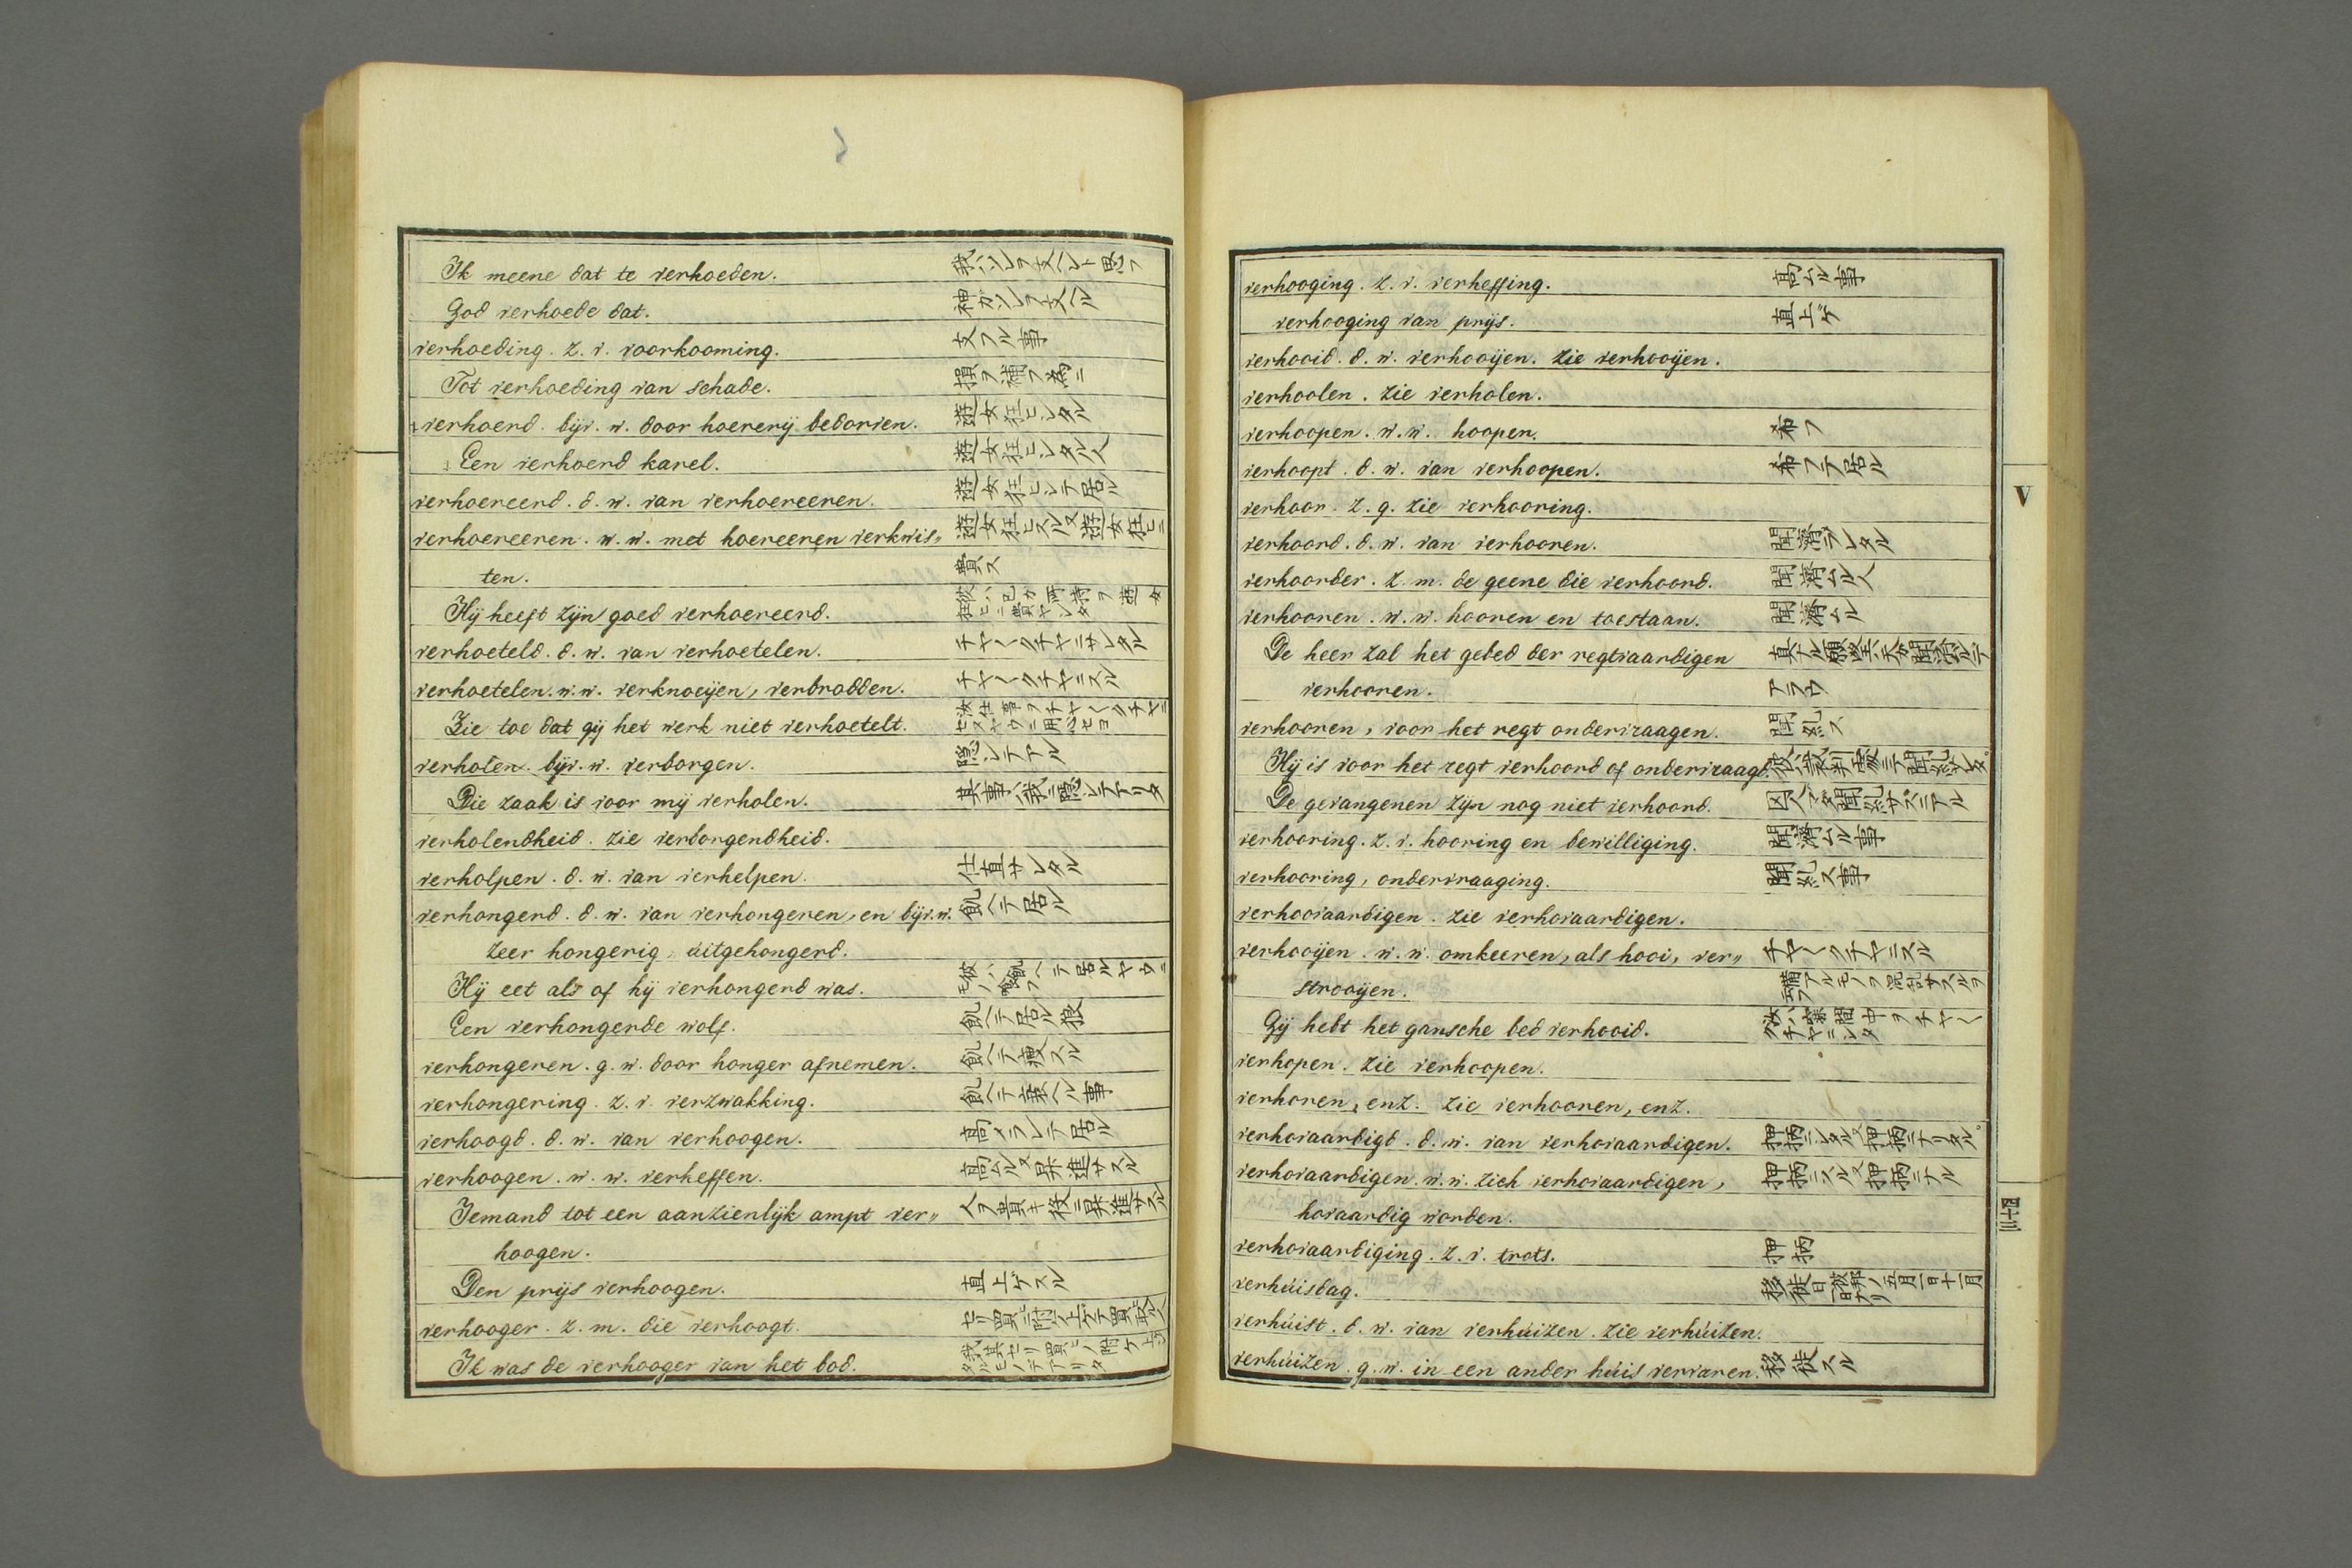 Ik meene dat te verhoeden. 我ハソレヲ支ヘント思フ
God verhoede dat. 神ガソレヲ支ヘル
verhoeding. z. v. voorkooming. 支フル事
Tot verhoeding van schade. 損ヲ補フ為ニ
verhoerd. bijv. w. door hoererij bedorven. 遊女狂ヒシタル
Een verhoerd karel. 遊女狂ヒシタル人
verhoereerd. d. w. van verhoereeren. 遊女狂ヒシテ居ル
verhoereeren. w. w. met hoereeren verkwis〃 遊女狂ヒスル又遊女狂ヒニ
ten. 費ス
Hij heeft zijn goed verhoereerd. 彼ハ己ガ所持ヲ遊女狂ヒニ費ヤシタ
verhoeteld. d. w. van verhoetelen. チヤ〱クチヤニサレタル
verhoetelen. w. w. verknoeijen, verbrodden. チヤ〱クチヤニスル
Zie toe dat gij het werk niet verhoetelt. 汝仕事ヲチヤ〱クチヤニセヌヤウニ用心セヨ
verholen. bijv. w. verborgen. 隠レテアル
Die zaak is voor mij verholen. 其事ハ我ニ隠レテアリタ
verholendheid. zie verborgendheid.
verholpen. d. w. van verhelpen. 仕直サレタル
verhongerd. d. w. van verhongeren, en bijv. w. 飢ヘテ居ル
zeer hongerig, uitgehongerd.
Hij eet als of hij verhongerd was. 彼ハ飢ヘテ居ルヤウニモノヲ喰フ
Een verhongerde wolf. 飢ヘテ居ル狼
verhongeren. g. w. door honger afnemen. 飢ヘテ痩スル
verhongering. z. v. verzwakking. 飢ヘテ衰ヘル事
verhoogd. d. w. van verhoogen. 高メラレテ居ル
verhoogen. w. w. verheffen. 高ムル又昇進サスル
Iemand tot een aanzienlijk ampt ver〃 人ヲ貴キ役ニ昇進サスル
hoogen.
Den prijs verhoogen. 直上ゲスル
verhooger. z. m. die verhoogt. セリ買ニ附ケ上ゲテ買フ人
Ik was de verhooger van het bod.
verhooging. z. v. verheffing. 高ムル事
verhooging van prijs. 直上ゲ
verhooid. d. w. verhooijen. zie verhooijen.
verhoolen. zie verholen.
verhoopen. w. w. hoopen. 希フ
verhoopt. d. w. van verhoopen. 希フテ居ル
verhoor. z. g. zie verhooring.
verhoord. d. w. van verhooren. 聞済ラレタル
verhoorder. z. m. de geene die verhoord. 聞済ムル人
verhooren. w. w. hooren en toestaan. 聞済ムル
De heer zal het gebed der regtvaardigen
verhooren. アラウ
verhooren, voor het regt ondervraagen. 聞糺ス
Hij is voor het regt verhoord of ondervraagd.
De gevangenen zijn nog niet verhoord. 囚人マダ聞糺サズニアル
verhooring. z. v. hooring en bewilliging. 聞済ムル事
verhooring, ondervraaging. 聞糺ス事
verhoovaardigen. zie verhovaardigen.
verhooijen. w. w. omkeeren, als hooi, ver〃 チヤ〱クチヤニスル
strooijen.
Gij hebt het gansche bed verhooid.
verhopen. zie verhoopen.
verhoren, enz. zie verhooren, enz.
verhovaardigd. d. w. van verhovaardigen. 押柄ニシタル又押柄ニナリタル
verhovaardigen. w. w. zich verhovaardigen, 押柄ニスル又押柄ニナル
hovaardig worden.
verhovaardiging. z. v. trots. 押柄
verhuisdag. 移徙日
verhuist. d. w. van verhuizen. zie verhuizen.
verhuizen. g. w. in een ander huis vervaren. 移徙スル
V
四十三